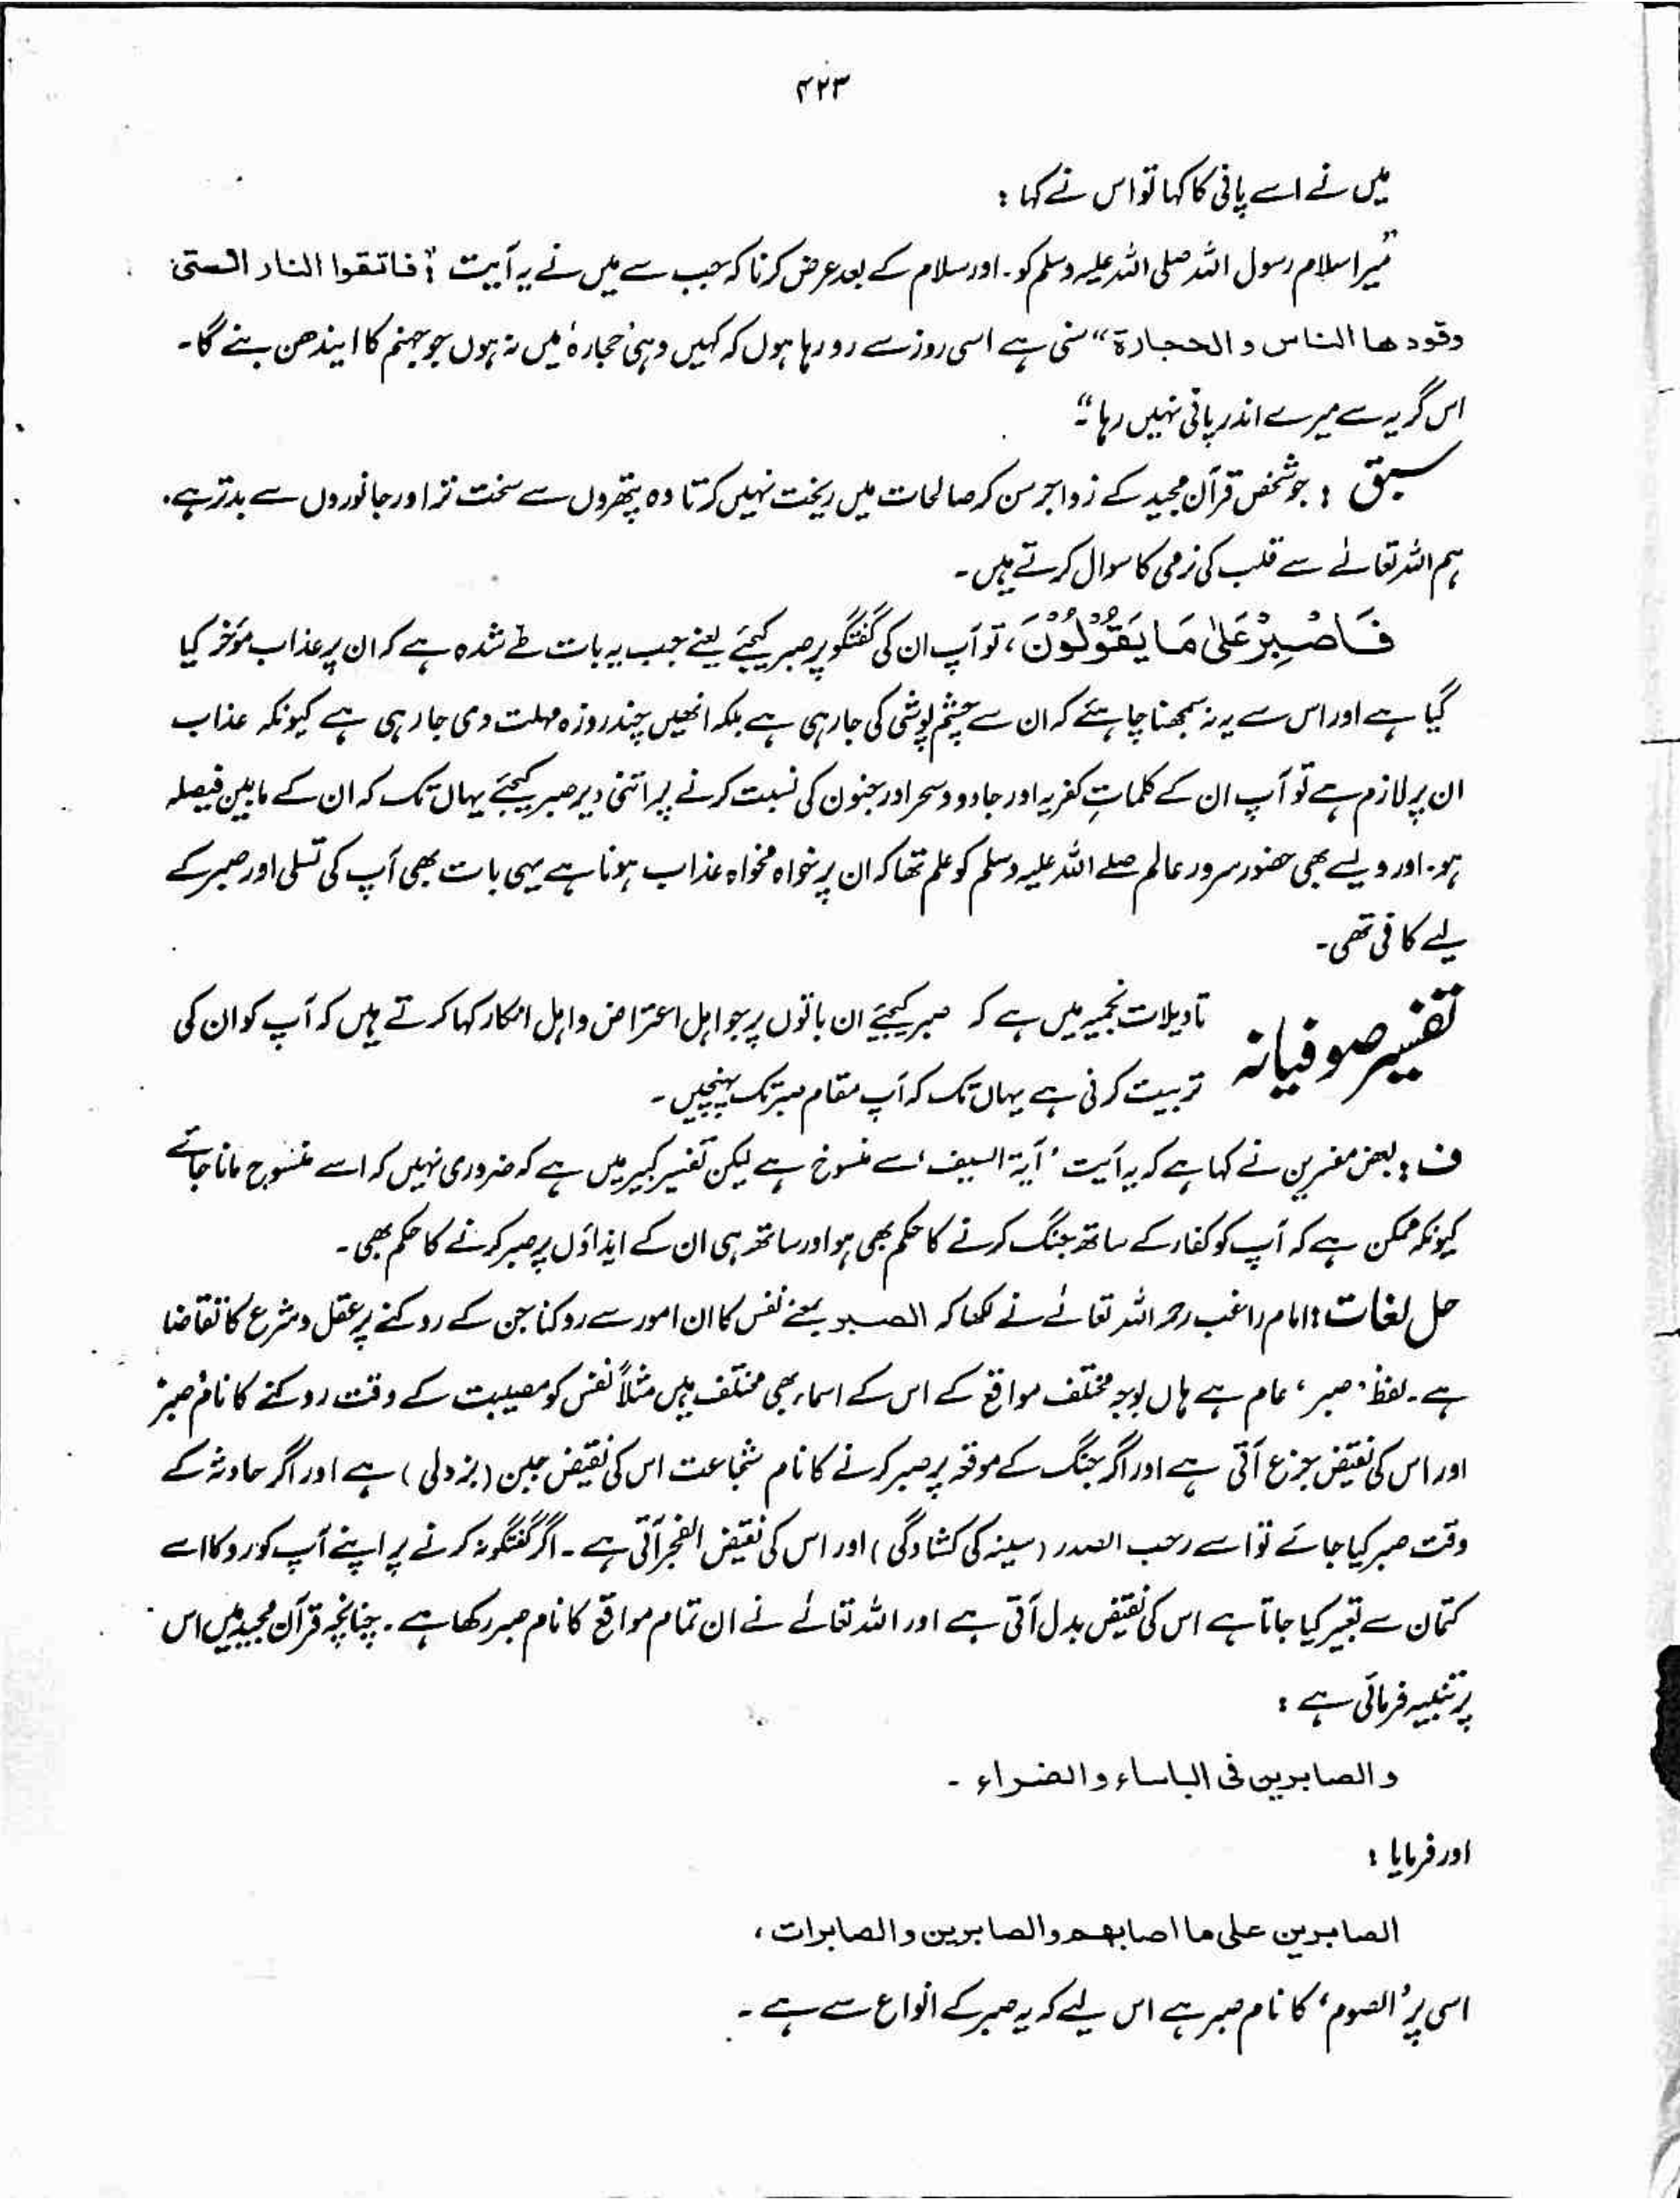 ۴۲۳
میں نے اسے پانی کا کہا تو اس نے کہا :
"میرا سلام رسول اللہ صلی اللہ علیہ وسلم کو۔ اور سلام کے بعد عرض کرنا کہ جب سے میں نے یہ آیت : فاتقوا النار التی
وقودھا الناس و الحجارۃ" سنی ہے اسی روز سے رو رہا ہوں کہ کہیں وہی حجارہ میں نہ ہوں جو جہنم کا ایندھن بنے گا۔
اس گریہ سے میرے اندر پانی نہیں رہا۔"
سبق : جو شخص قرآن مجید کے زواجر سن کر صالحات میں ریخت نہیں کرتا وہ پتھروں سے سخت تر اور جانوروں سے بدتر ہے۔
ہم اللہ تعالےٰ سے قلب کی نرمی کا سوال کرتے ہیں۔
فَاصْبِرْ عَلیٰ مَا یَقُوْلُوْنَ، تو آپ ان کی گفتگو پر صبر کیجئے یعنے جب یہ بات طے شدہ ہے کہ ان پر عذاب مؤخر کیا
گیا ہے اور اس سے یہ نہ سمجھنا چاہئے کہ ان سے چشم پوشی کی جا رہی ہے بلکہ انھیں چند روزہ مہلت دی جا رہی ہے کیونکہ عذاب
ان پر لازم ہے تو آپ ان کے کلماتِ کفریہ اور جادو و سحر اور جنون کی نسبت کرنے پر اتنی دیر صبر کیجئے یہاں تک کہ ان کے مابین فیصلہ
ہو۔ اور ویسے بھی حضور سرور عالم صلے اللہ علیہ وسلم کو علم تھا کہ ان پر خواہ مخواہ عذاب ہونا ہے یہی بات بھی آپ کی تسلی اور صبر کے
لیے کافی تھی۔
تفسیر صوفیانہ تاویلات نجمیہ میں ہے کہ صبر کیجئے ان باتوں پر جو اہل اعتراض و اہل انکار کہا کرتے ہیں کہ آپ کو ان کی
تربیت کرنی ہے یہاں تک کہ آپ مقام صبر تک پہنچیں۔
ف : بعض مفسرین نے کہا ہے کہ یہ آیت 'آیۃ السیف' سے منسوخ ہے لیکن تفسیر کبیر میں ہے کہ ضروری نہیں کہ اسے منسوخ مانا جائے
کیونکہ ممکن ہے کہ آپ کو کفار کے ساتھ جنگ کرنے کا حکم بھی ہو اور ساتھ ہی ان کے ایذاؤں پر صبر کرنے کا حکم بھی۔
حل لغات : امام راغب رحمہ اللہ تعالےٰ نے لکھا کہ الصبر بمعنے نفس کا ان امور سے روکنا جن کے روکنے پر عقل و شرع کا تقاضا
ہے۔ لفظ 'صبر' عام ہے ہاں بوجہ مختلف مواقع کے اس کے اسماء بھی مختلف ہیں مثلاً نفس کو مصیبت کے وقت روکنے کا نام 'صبر'
اور اس کی نقیض جزع آتی ہے اور اگر جنگ کے موقعہ پر صبر کرنے کا نام شجاعت اس کی نقیض جبن (بزدلی) ہے اور اگر حادثہ کے
وقت صبر کیا جائے تو اسے رحب الصدر (سینہ کی کشادگی) اور اس کی نقیض الفجر آتی ہے۔ اگر گفتگو نہ کرنے پر اپنے آپ کو روکا اسے
کتمان سے تعبیر کیا جاتا ہے اس کی نقیض بدل آتی ہے اور اللہ تعالےٰ نے ان تمام مواقع کا نام صبر رکھا ہے۔ چنانچہ قرآن مجید میں اس
پر تنبیہ فرمائی ہے :
و الصابرین فی الباساء و الضراء ۔
اور فرمایا :
الصابرین علی ما اصابھم والصابرین والصابرات،
اسی پر 'الصوم' کا نام صبر ہے اس لیے کہ یہ صبر کے انواع سے ہے ۔